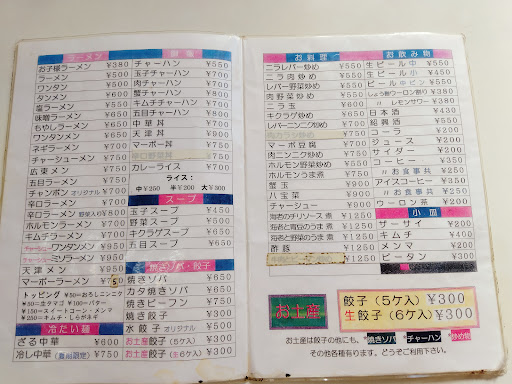 ラーメン
お子様ラーメン ¥380
ラーメン ¥500
ワンタン ¥500
タンメン ¥600
塩ラーメン ¥550
味噌ラーメン ¥650
もやしラーメン ¥650
ワンタンメン ¥650
ネギラーメン ¥700
チャーシューメン ¥750
広東メン ¥750
五目ラーメン ¥750
チャンポン オリジナル ¥700
辛口ラーメン ¥700
辛口ラーメン 野菜入り ¥800
ホルモンラーメン ¥700
キムチラーメン ¥700
チャーシューワンタンメン ¥950
チャーシューミソラーメン ¥950
天津メン ¥750
マーボーラーメン
トッピング ¥50=おろしニンニク
¥100=バター
¥150=スイートコーン・メンマ
キムチ・しらがネギ
冷たい麺
ざる中華 ¥600
冷し中華 ¥750
チャーハン ¥550
玉子チャーハン ¥700
肉チャーハン ¥700
蟹チャーハン ¥800
キムチチャーハン ¥700
五目チャーハン ¥800
中華丼 ¥700
天津丼 ¥900
マーボー丼 ¥750
辛口野菜丼
カレーライス ¥700
ライス:
小¥250 半¥200 大¥300
スープ
玉子スープ ¥450
野菜スープ ¥500
キクラゲスープ ¥650
五目スープ ¥650
焼きソバ・餃子
焼きソバ ¥650
カタ焼きソバ ¥650
焼きビーフン ¥750
焼き餃子 ¥300
水餃子 オリジナル ¥500
お土産餃子(5ケ入) ¥300
お土産餃子(生6ケ入) ¥300
お料理
ニラレバー炒め ¥550
ニラ肉炒め ¥550
レバー野菜炒め ¥550
肉野菜炒め ¥550
ニラ玉 ¥600
キクラゲ炒め ¥700
レバーニンニク炒め ¥700
マーボ豆腐 ¥700
肉ニンニク炒め ¥750
ホルモン野菜炒め ¥750
ホルモンうま煮 ¥750
蟹玉 ¥900
八宝菜 ¥900
チャーシュー ¥900
海老のチリソース煮 ¥1250
海老と青豆のうま煮 ¥1250
海老と野菜のうま煮 ¥1250
酢豚 ¥1250
¥1250
お飲み物
生ビール中 ¥550
生ビール小 ¥450
ビール中ビン ¥550
しょう酎ウーロン割り ¥380
〃 レモンサワー ¥380
日本酒 ¥430
紹興酒 ¥550
コーラ ¥200
ジュース ¥200
サイダー ¥200
コーヒー ¥350
〃お食事共 ¥250
アイスコーヒー ¥350
〃お食事共 ¥250
ウーロン茶 ¥200
小皿
ザーサイ ¥250
キムチ ¥400
メンマ ¥200
ピータン ¥300
お土産
餃子(5ケ入) ¥300
生餃子(6ケ入) ¥300
お土産は餃子の他にも、"焼きソバ" "チャーハン"
その他各種有ります。どうぞご利用下さい。